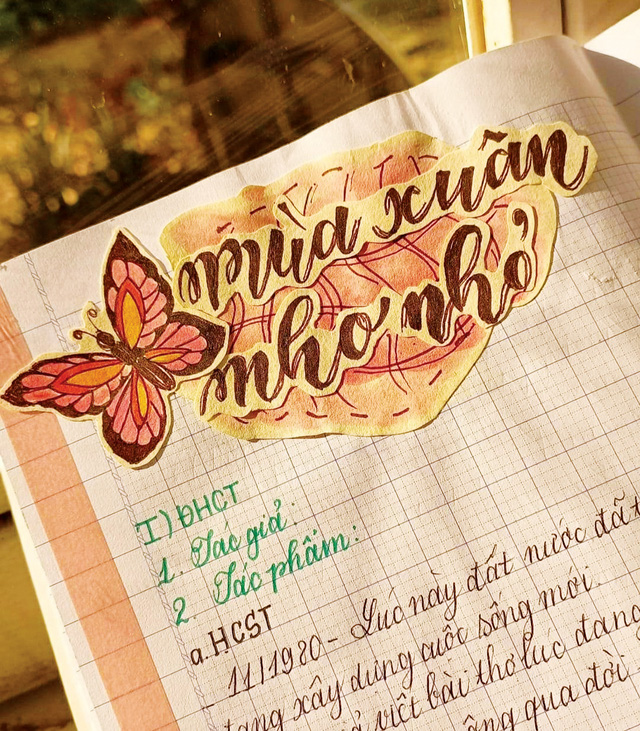 mùa xuân
nho nhỏ
I) ĐHCT
1. Tác giả:
2. Tác phẩm:
a. HCST
- 11/1980 - Lúc này đất nước đất
đang xây dựng cuộc sống mới.
viết bài thơ lúc đang
qua đời